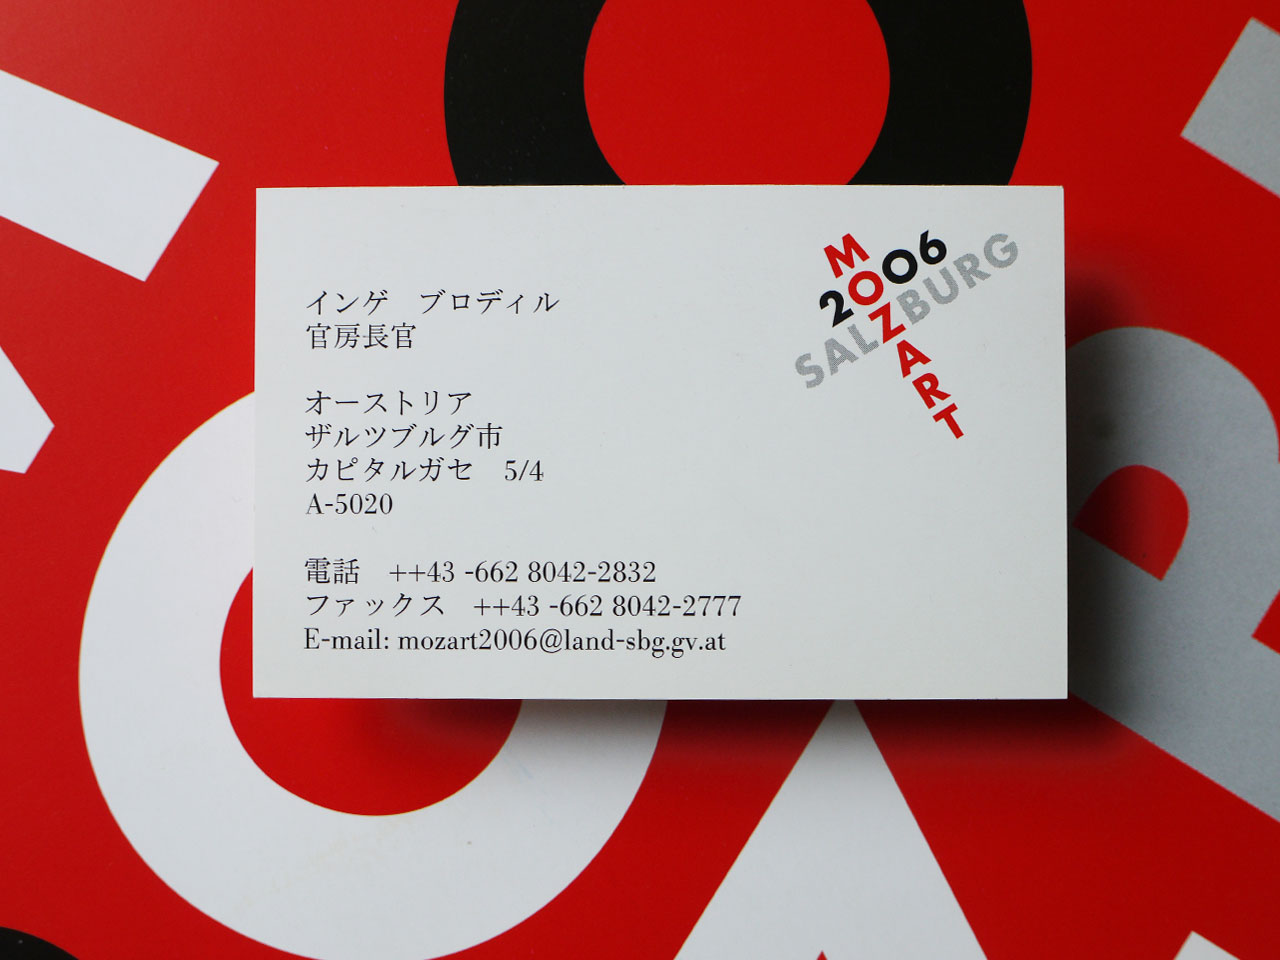 MOZART
2006
SALZBURG
インゲ　ブロディル
官房長官
オーストリア
ザルツブルグ市
カピタルガセ　5/4
A-5020
電話　++43 -662 8042-2832
ファックス　++43 -662 8042-2777
E-mail: mozart2006@land-sbg.gv.at